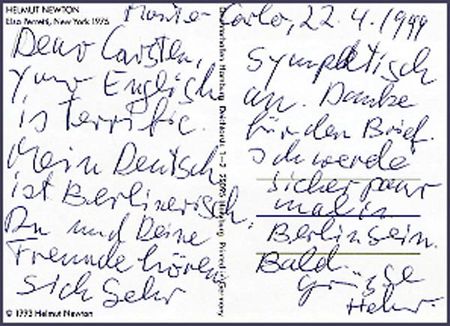 HELMUT NEWTON
Elsa Peretti, New York 1975
Monte Carlo, 22.4.1999
Dear Carsten,
Your English
is terrific.
Mein Deutsch
ist Berlinerisch.
Du und Deine
Freunde hören
sich sehr
© 1993 Helmut Newton
Hamburg 1-2 Hamburg Printed in Germany
sympathisch
an. Danke
für den Brief.
Ich werde
sicher paar
mal in
Berlin sein.
Bald.
Grüsse
Helmut